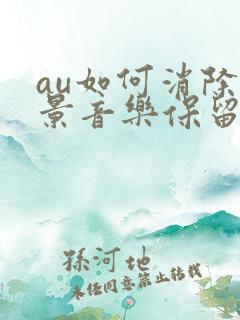 au如何消除
景音樂保留
孫河地
未经同意禁止转载